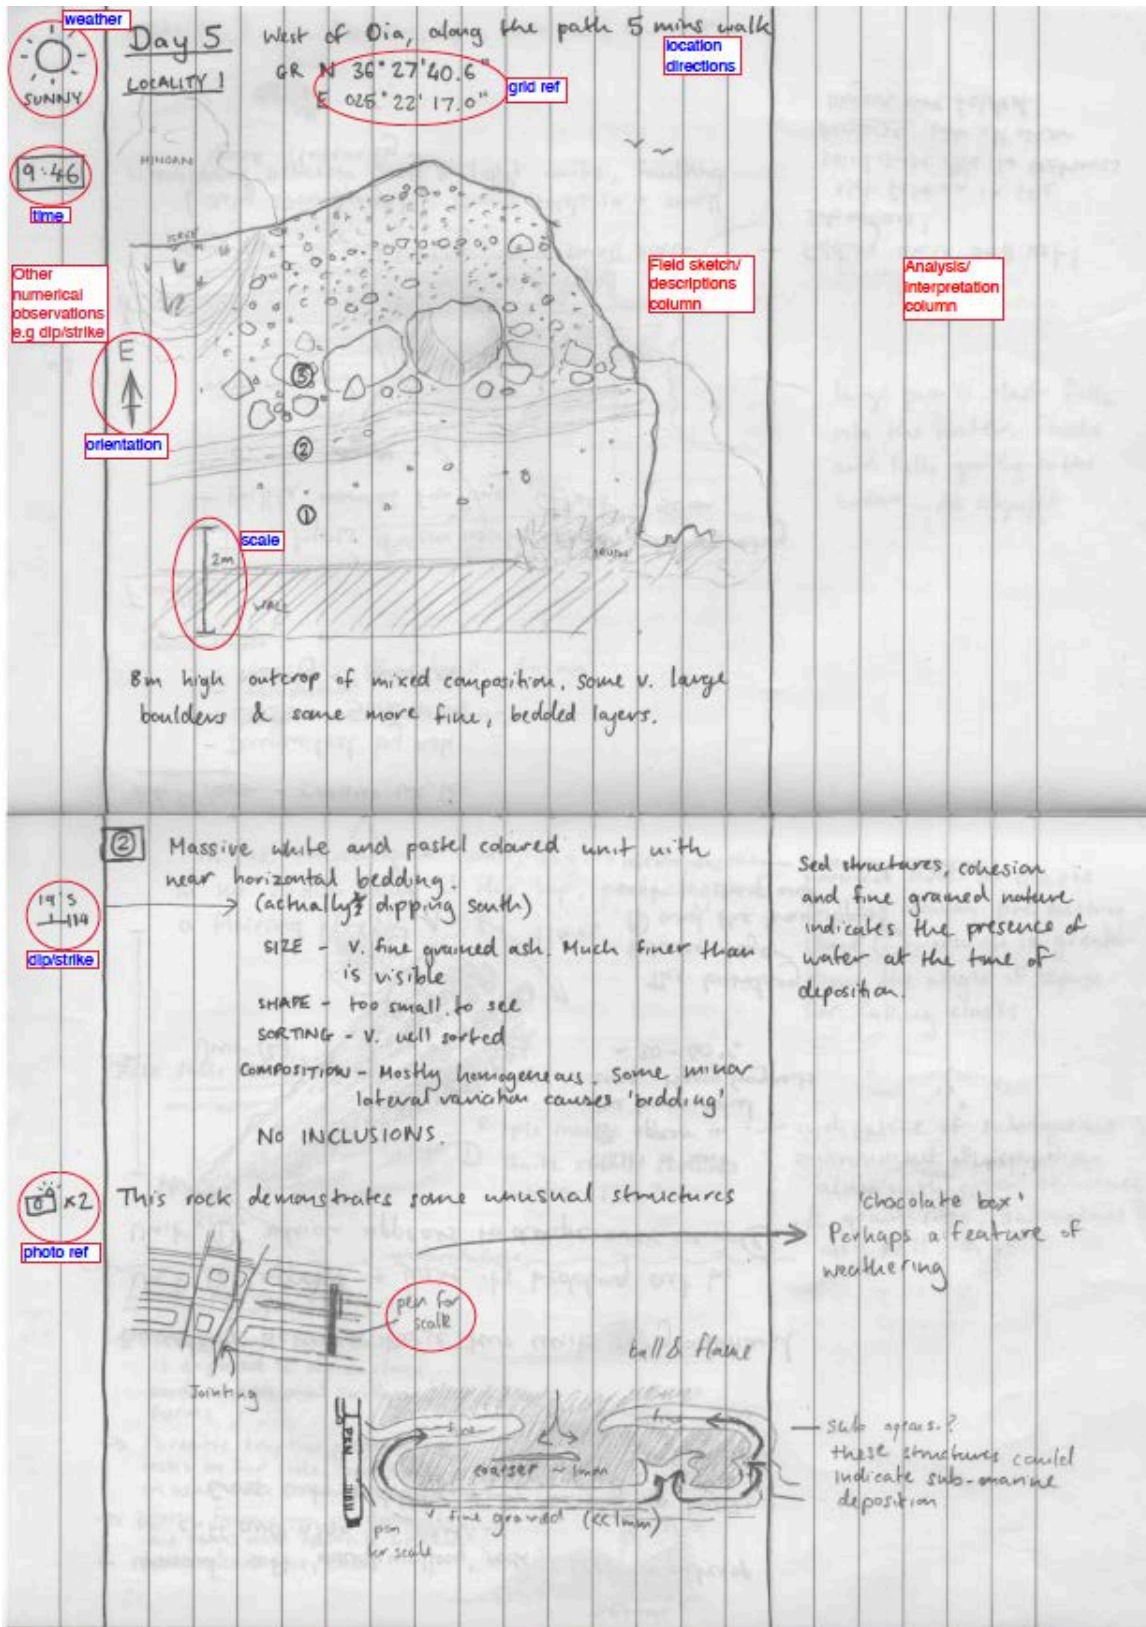 weather
Day 5 West of Oia, along the path 5 mins walk
location
directions
LOCALITY 1
GR N 36° 27' 40.6"
E 025° 22' 17.0"
grid ref
SUNNY
MINOAN
9:46
time
Other
numerical
observations
e.g dip/strike
Field sketch/
descriptions
column
Analysis/
interpretation
column
E
orientation
③
②
①
scale
2m
WALL
8m high outcrop of mixed composition, some v. large
boulders & some more fine, bedded layers.
② Massive white and pastel coloured unit with
near horizontal bedding.
(actually dipping south)
19° S
114
dip/strike
SIZE - v. fine grained ash. Much finer than
is visible
SHAPE - too small to see
SORTING - v. well sorted
COMPOSITION - Mostly homogeneous. Some minor
lateral variation causes 'bedding'
NO INCLUSIONS.
Sed structures, cohesion
and fine grained nature
indicates the presence of
water at the time of
deposition.
x2
photo ref
This rock demonstrates some unusual structures
'chocolate box'
Perhaps a feature of
weathering
pen for
scale
Jointing
ball & flame
fine
fine
PEN
coarser ~1mm
v. fine grained (<<1mm)
pen
for scale
these structures could
indicate sub-marine
deposition